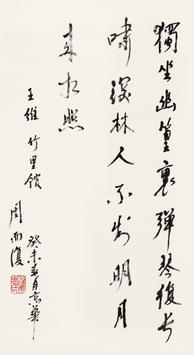 獨坐幽篁裏彈琴復長
嘯深林人不知明月
来相照
王維 竹里館
周而復
癸未 月京華